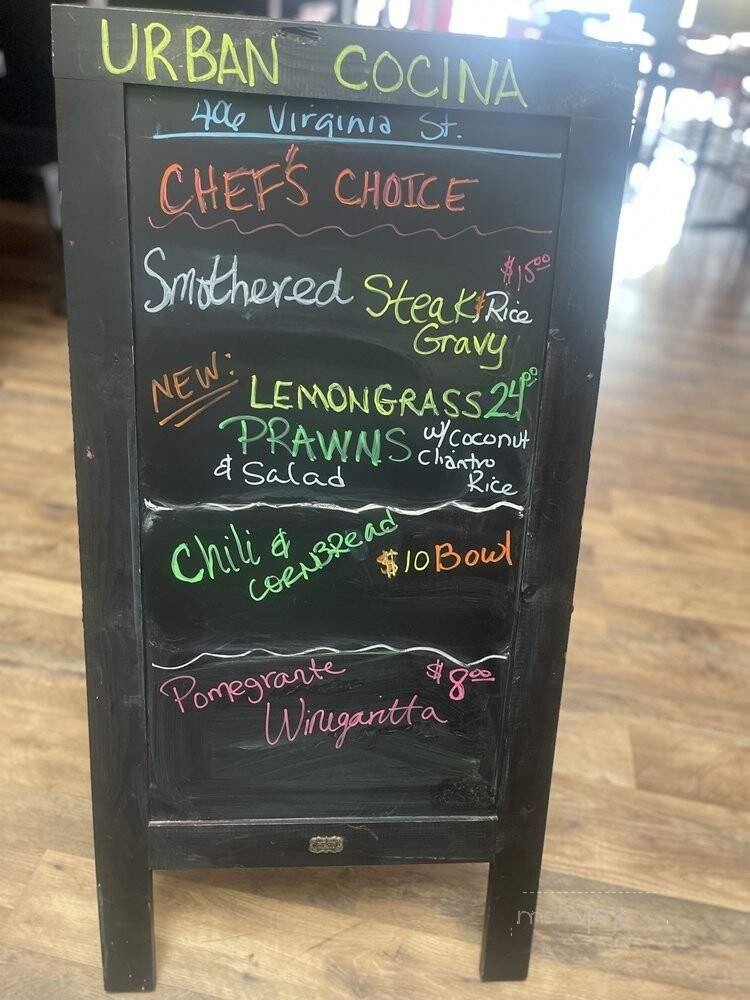 URBAN COCINA
406 Virginia St.
CHEF'S CHOICE
Smothered Steak, Rice $15.00
Gravy
NEW: LEMONGRASS 24.00
PRAWNS w/coconut
& Salad Cliantro
Rice
Chili &
CORNBREAD $10 Bowl
Pomegrante $8.00
Winegaritta